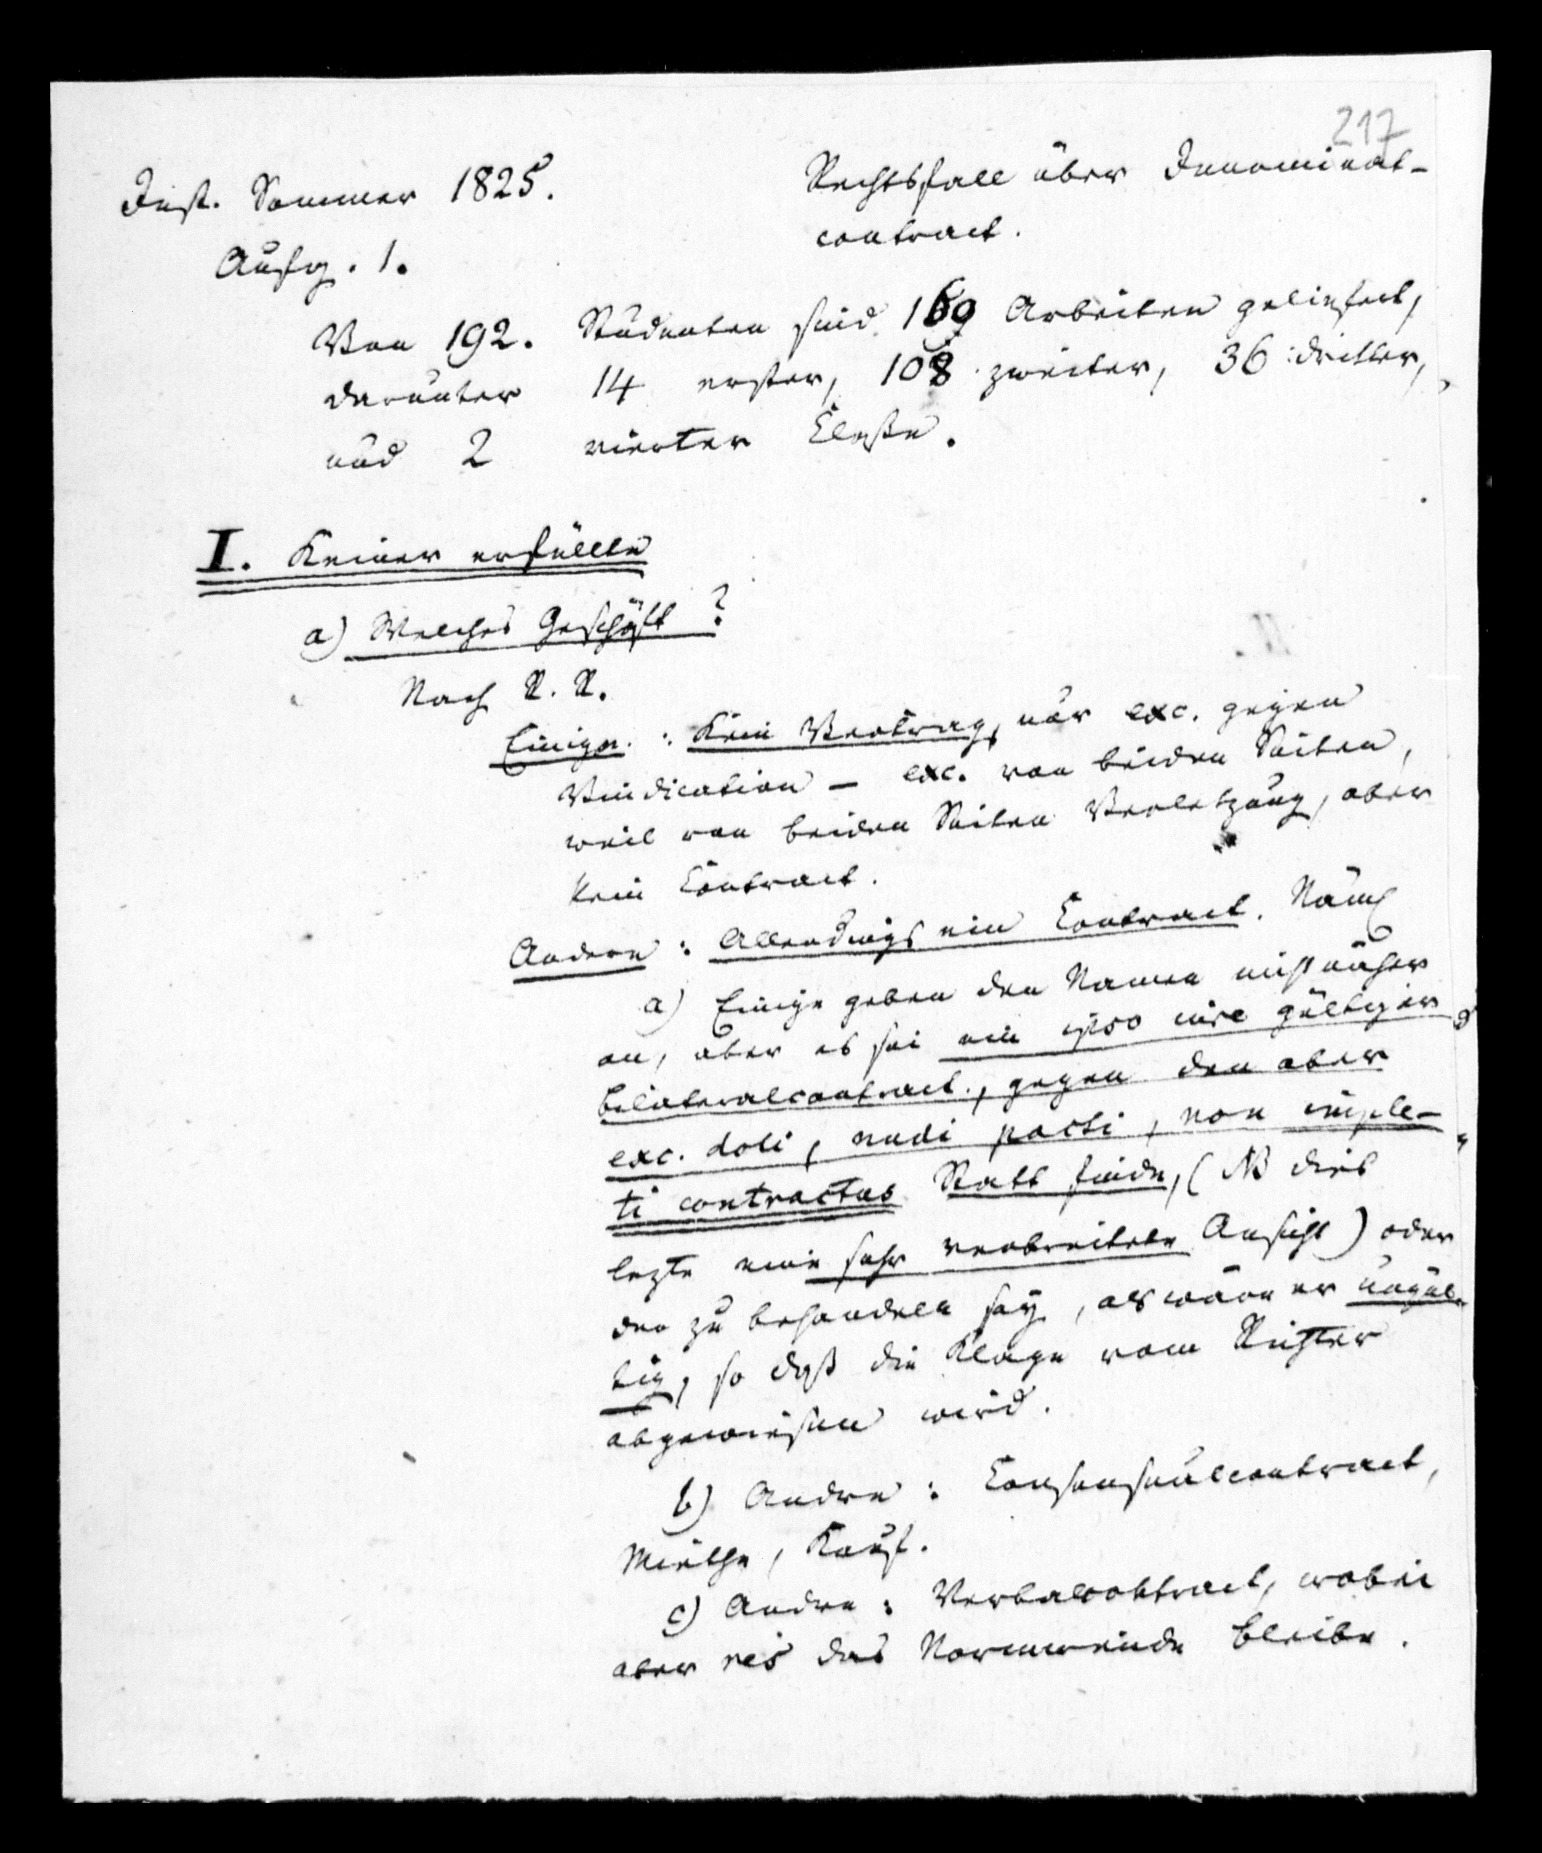 217
Inst. Sommer 1825.
Rechtsfall über Innominat-
contract.
Aufg. 1.
Von 192. Studenten sind 169 Arbeiten geliefert,
darunter 14 erster, 108 zweiter, 36 dritter,
und 2 vierter Classe.
I. Keiner erfüllte
a) Welches Geschäft?
Nach R. R.
Einige: Kein Vertrag, nur exc. gegen
Vindication – exc. von beiden Seiten,
weil von beiden Seiten Verletzung, aber
kein Contract.
Andere: Allerdings ein Contract. Näml
a) Einige geben den Namen nicht näher
an, aber es sei ein ipso iure gültiger
bilateralcontract, gegen den aber
exc. doli, nudi pacti, non imple-
ti contractus Statt finde, (NB dies
lezte eine sehr verbreitete Ansicht) oder
der zu behandeln sey, als wäre er ungül-
tig, so daß die Klage vom Richter
abgewiesen wird.
b) Andre: Consensualcontract,
Miethe, Kauf.
c) Andre: Verbalcontract, wobei
aber das bleibe.